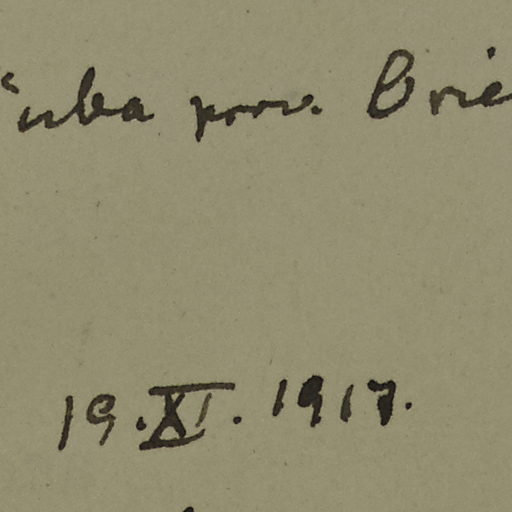 Cuba prov. Orie
19.XI.1917.